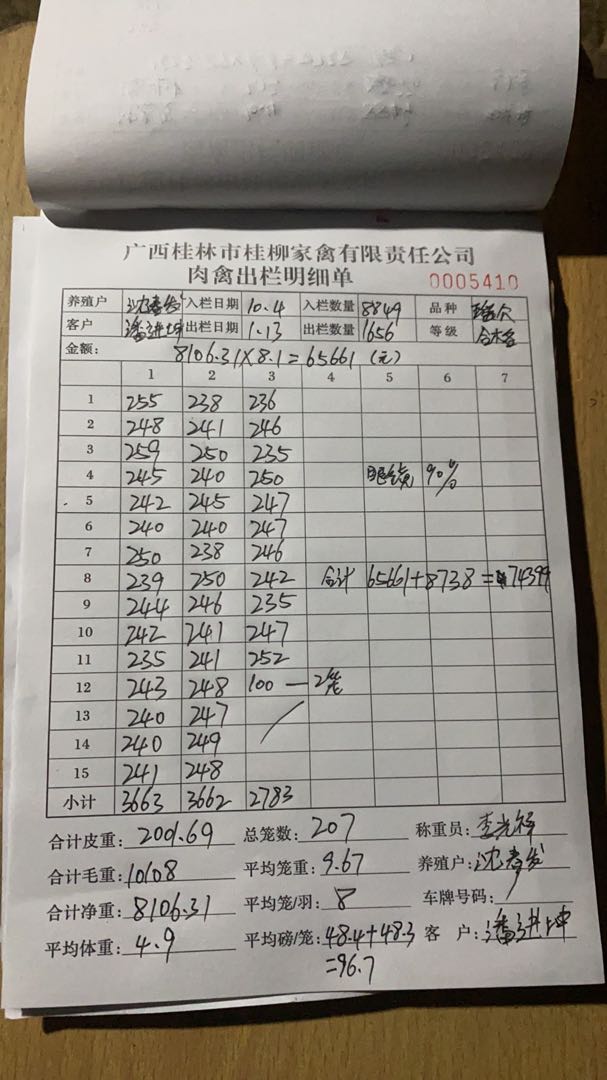 广西桂林市桂柳家禽有限责任公司
肉禽出栏明细单 0005410
养殖户 沈春发 入栏日期 10.4 入栏数量 8849 品种
客户 潘进坤 出栏日期 1.13 出栏数量 1656 等级 合格
金额: 8106.31×8.1=65661 (元)
1 2 3 4 5 6 7
1 255 238 236
2 248 241 246
3 259 250 235
4 245 240 250 眼镜 90%
5 242 245 247
6 240 240 247
7 250 238 246
8 239 250 242 合计 65661+8738=74399
9 244 246 235
10 242 241 247
11 235 241 252
12 243 248 100 — 2笼
13 240 247
14 240 249
15 241 248
小计 3663 3662 2783
合计皮重: 2001.69 总笼数: 207 称重员: 李光
合计毛重: 10108 平均笼重: 9.67 养殖户: 沈春发
合计净重: 8106.31 平均笼/羽: 8 车牌号码:
平均体重: 4.9 平均磅/笼: 48.4+48.3 客 户: 潘进坤
=96.7